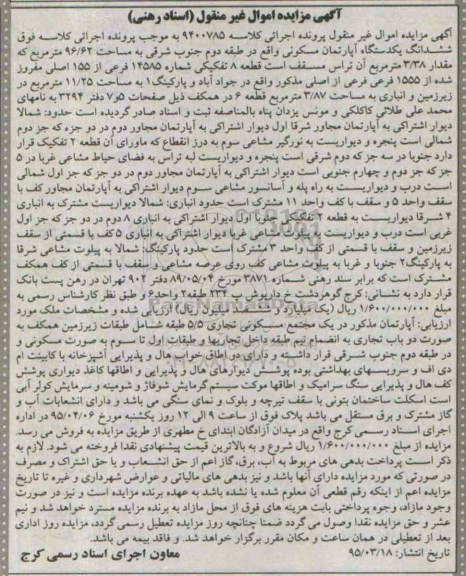 آگهی مزایده اموال غیر منقول (اسناد رهنی)
آگهی مزایده اموال غیر منقول پرونده اجرائی کلاسه ۹۴۰۰۷۸۵ به موجب پرونده اجرائی کلاسه فوق
ششدانگ یکدستگاه آپارتمان مسکونی واقع در طبقه دوم جنوب شرقی به مساحت ۹۶/۶۲ مترمربع که
مقدار ۳/۳۸ مترمربع آن تراس مسقف است قطعه ۸ تفکیکی شماره ۱۴۵۸۵ فرعی از ۱۵۵ اصلی مفروز
شده از ۱۵۵۵ فرعی از اصلی مذکور واقع در جواد آباد و پارکینگ۱ به مساحت ۱۱/۲۵ مترمربع در
زیرزمین و انباری به مساحت ۳/۸۷ مترمربع قطعه ۶ در همکف ذیل صفحات ۵و۷ دفتر ۳۲۹۴ به نامهای
محمد علی طلائی کاکلکی و مونس یزدان پناه بالمناصفه ثبت و اسناد صادر گردیده است حدود: شمالا
دیوار اشتراکی به آپارتمان مجاور شرقا اول دیوار اشتراکی به آپارتمان مجاور دوم در دو جزء که جز دوم
شمالی است پنجره و دیواریست به نورگیر مشاعی سوم به درز انقطاع که ماورای آن قطعه ۲ تفکیک قرار
دارد جنوبا در سه جز که دوم شرقی است پنجره و دیواریست لبه تراس به فضای حیاط مشاعی غربا در ۵
جز که جز دوم و چهارم جنوبی است دیوار اشتراکی به آپارتمان مجاور دوم در دو جز که جز اول شمالی
است درب و دیواریست به راه پله و آسانسور مشاعی سوم دیوار اشتراکی به آپارتمان مجاور کف با
سقف واحد ۵ و سقف با کف واحد ۱۱ مشترک است حدود انباری: شمالا دیواریست مشترک به انباری
۴ شرقا دیواریست به قطعه ۲ تفکیکی جنوبا اول دیوار اشتراکی به انباری ۸ دوم در دو جز که جز اول
غربی است درب و دیواریست به راهرو مشاعی غربا دیوار اشتراکی به انباری ۵ کف با قسمتی از سقف
زیرزمین و سقف با قسمتی از کف واحد ۳ مشترک است حدود پارکینگ: شمالا به پیلوت مشاعی شرقا
به پارکینگ۲ جنوبا و غربا به پیلوت مشاعی کف روی عرصه مشاعی و سقف با قسمتی از کف همکف
مشترک است که برابر سند رهنی شماره ۳۸۷۱ مورخ ۸۹/۰۵/۰۴ دفتر ۹۰۲ تهران در رهن پست بانک
قرار دارد به نشانی: کرج گوهردشت خ داریوش پ ۲۳۴ طبقه۲ واحد۶ و طبق نظر کارشناس رسمی به
مبلغ ۱/۶۰۰/۰۰۰/۰۰۰ ریال (یک میلیارد و ششصد میلیون ریال) ارزیابی شده و مشخصات ملک مورد
ارزیابی: آپارتمان مذکور در یک مجتمع مسکونی تجاری ۵/۵ طبقه شامل طبقات زیرزمین همکف به
صورت دو باب تجاری به انضمام نیم طبقه داخل تجاریها و طبقات اول تا سوم به صورت مسکونی و
در طبقه دوم جنوب شرقی قرار داشته و دارای دو اطاق خواب هال و پذیرایی آشپزخانه با کابینت ام
دی اف و سرویسهای بهداشتی بوده پوشش دیوارهای هال و پذیرایی و اطاقها کاغذ دیواری پوشش
کف هال و پذیرایی سنگ سرامیک و اطاقها موکت سیستم گرمایش شوفاژ و شومینه و سرمایش کولر آبی
است اسکلت ساختمان بتونی با سقف تیرچه و بلوک و نمای سنگی می باشد و دارای انشعابات آب و
گاز مشترک و برق مستقل می باشد پلاک فوق از ساعت ۹ الی ۱۲ روز یکشنبه مورخ ۹۵/۰۴/۰۶ در اداره
اجرای اسناد رسمی کرج واقع در میدان آزادگان ابتدای خ مطهری از طریق مزایده به فروش می رسد.
مزایده از مبلغ ۱/۶۰۰/۰۰۰/۰۰۰ ریال شروع و به بالاترین قیمت پیشنهادی نقدا فروخته می شود. لازم به
ذکر است پرداخت بدهی های مربوط به آب، برق، گاز اعم از حق انشعاب و یا حق اشتراک و مصرف
در صورتی که مورد مزایده دارای آنها باشد و نیز بدهی های مالیاتی و عوارض شهرداری و غیره تا تاریخ
مزایده اعم از اینکه رقم قطعی آن معلوم شده یا نشده باشد به عهده برنده مزایده است و نیز در صورت
وجود مازاد، وجوه پرداختی بابت هزینه های فوق از محل مازاد به برنده مزایده مسترد خواهد شد و نیم
عشر و حق مزایده نقدا وصول می گردد ضمنا چنانچه روز مزایده تعطیل رسمی گردد، مزایده روز اداری
بعد از تعطیلی در همان ساعت و مکان مقرر برگزار خواهد شد. و فاقد بیمه می باشد.
تاریخ انتشار: ۹۵/۰۳/۱۸
معاون اجرای اسناد رسمی کرج